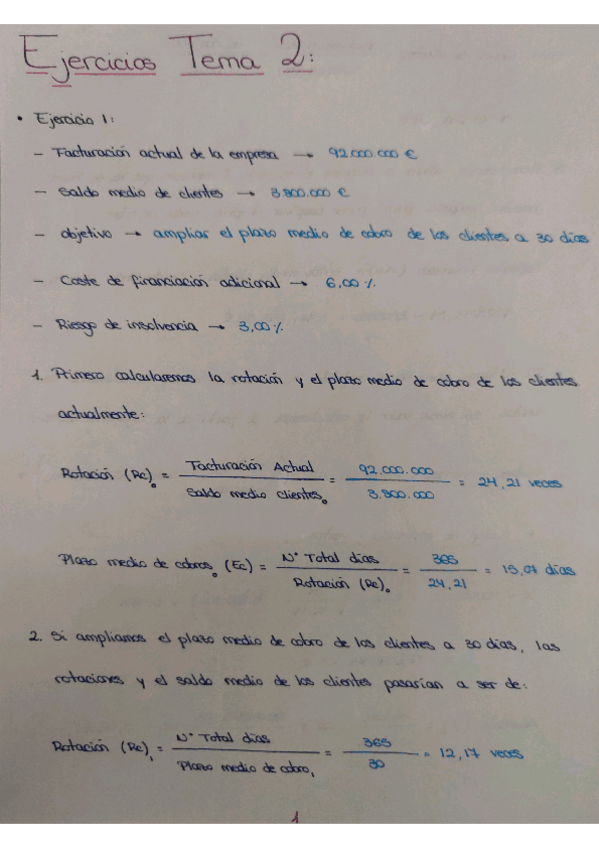 Ejercicios Tema 2:
• Ejercicio 1:
– Facturación actual de la empresa → 92.000.000 €
– Saldo medio de clientes → 3.800.000 €
– objetivo → ampliar el plazo medio de cobro de los clientes a 30 días
– Coste de financiación adicional → 6,00 %
– Riesgo de insolvencia → 3,00 %
1. Primero calcularemos la rotación y el plazo medio de cobro de los clientes
actualmente:
Rotación (Rc)₀ = Facturación Actual / Saldo medio clientes₀ = 92.000.000 / 3.800.000 = 24,21 veces
Plazo medio de cobros₀ (Ec) = Nº Total días / Rotación (Rc)₀ = 365 / 24,21 = 15,07 días
2. Si ampliamos el plazo medio de cobro de los clientes a 30 días, las
rotaciones y el saldo medio de los clientes pasarían a ser de:
Rotación (Rc)₁ = Nº Total días / Plazo medio de cobro₁ = 365 / 30 = 12,17 veces
1